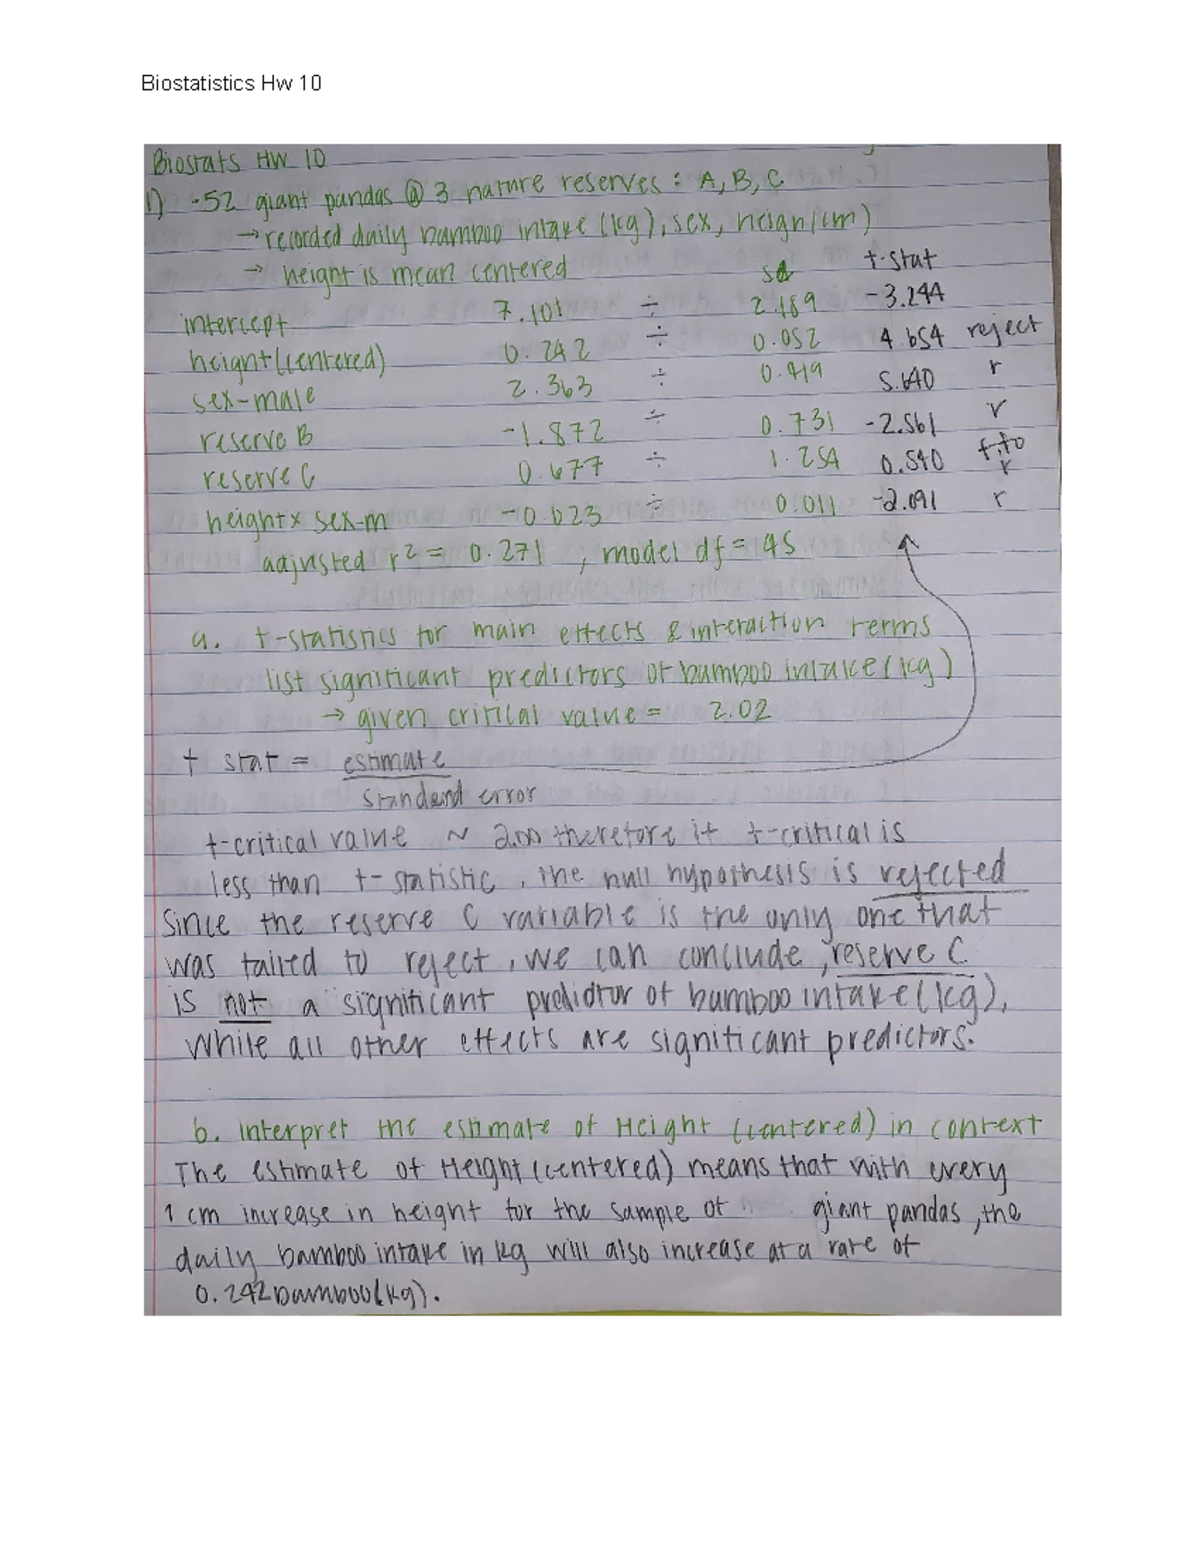 Biostatistics Hw 10
Biostats HW 10
1) -52 giant pandas @ 3 nature reserves : A, B, C
→ recorded daily bamboo intake (kg), sex, heigh(cm)
→ height is mean centered se t-stat
intercept 7.101 ÷ 2.189 -3.244
height (centered) 0.242 ÷ 0.052 4.654 reject
sex-male 2.363 ÷ 0.419 5.640 r
reserve B -1.872 ÷ 0.731 -2.561 r
reserve C 0.677 ÷ 1.254 0.540 f. to r
height x sex-m -0.023 ÷ 0.011 -2.091 r
adjusted r² = 0.271 , model df = 45
a. t-statistics for main effects & interaction terms
list significant predictors of bamboo intake (kg)
→ given critical value = 2.02
t stat = estimate
standard error
t-critical value ~ 2.00 therefore if t-critical is
less than t-statistic, the null hypothesis is rejected
Since the reserve C variable is the only one that
was failed to reject, we can conclude, reserve C
is not a significant predictor of bamboo intake (kg),
while all other effects are significant predictors.
b. interpret the estimate of Height (centered) in context
The estimate of Height (centered) means that with every
1 cm increase in height for the sample of giant pandas, the
daily bamboo intake in kg will also increase at a rate of
0.242 bamboo (kg).